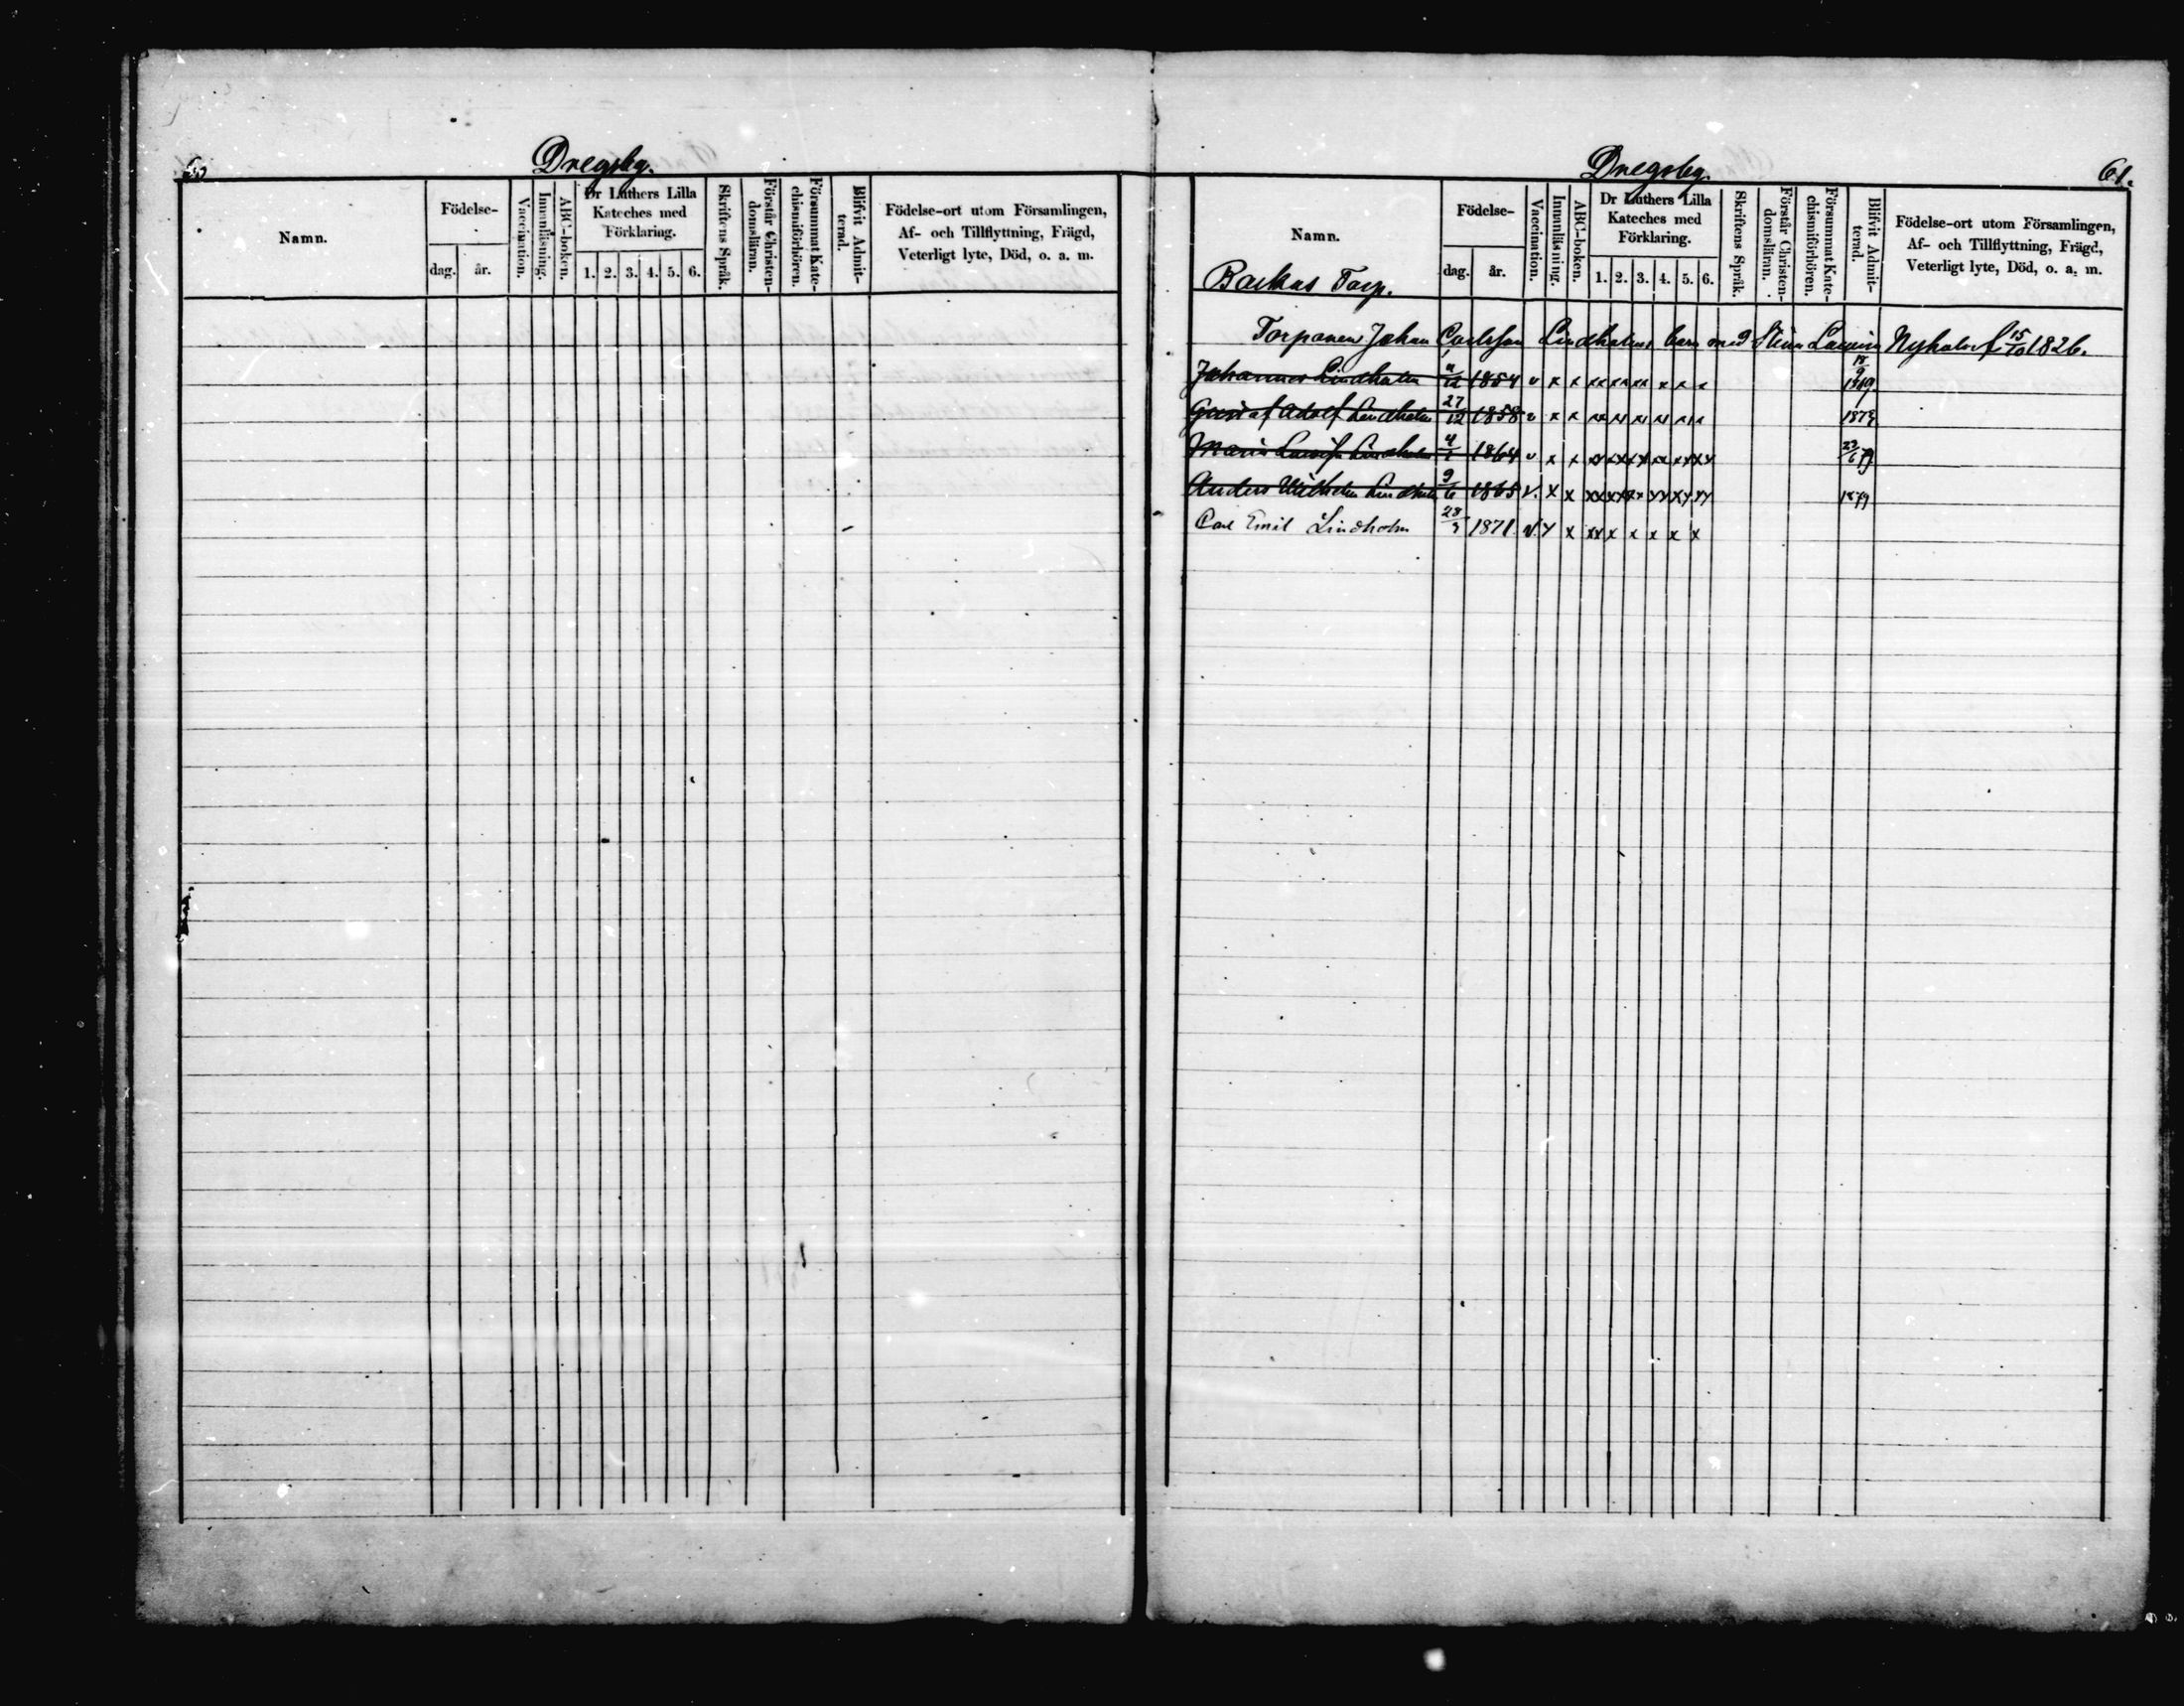 60
Dregsby.
Namn.
Födelse-
dag. år.
Vaccination.
Innanläsning.
ABC-boken.
Dr Luthers Lilla
Kateches med
Förklaring.
1. 2. 3. 4. 5. 6.
Skriftens Språk.
Förstår Christen-
domsläran.
Försummat Kate-
chismiförhören.
Blifvit Admit-
terad.
Födelse-ort utom Församlingen,
Af- och Tillflyttning, Frägd,
Veterligt lyte, Död, o. a. m.
Dregsby.
61.
Namn.
Födelse-
dag. år.
Vaccination.
Innanläsning.
ABC-boken.
Dr Luthers Lilla
Kateches med
Förklaring.
1. 2. 3. 4. 5. 6.
Skriftens Språk.
Förstår Christen-
domsläran.
Försummat Kate-
chismiförhören.
Blifvit Admit-
terad.
Födelse-ort utom Församlingen,
Af- och Tillflyttning, Frägd,
Veterligt lyte, Död, o. a. m.
Backas Torp.
Torparen Johan Carlsson Lindholms barn med Stina Lovisa Nyholm f. 15/10 1826.
Johannes Lindholm 1854 v x x xx xx xx x x x
Gustaf Adolf Lindholm 27/12 1858 v x x xx xx xx xx xx x 1873
Maria Lovisa Lindholm 4/1 1864 v x x xx xx xx xx xx xx 22/6 79
Anders Wilhelm Lindholm 9/6 1865 v. x x xx xx xx xx xx xx 1879
Carl Emil Lindholm 1871 v. x x xx x x x x x